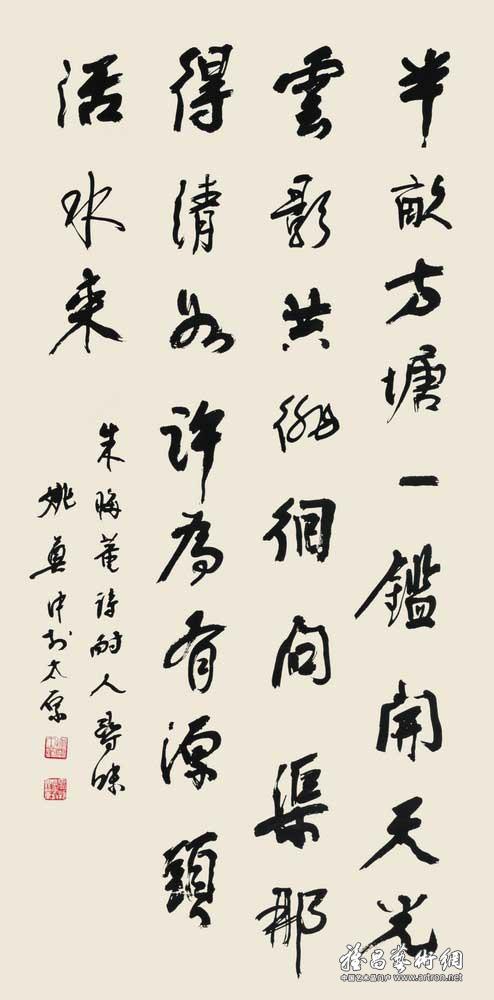 半畝方塘一鑑開天光
雲影共徘徊問渠那
得清如許為有源頭
活水來
朱晦菴詩耐人尋味
姚奠中於太原
雅昌藝術網
中国艺术品门户 artron.net